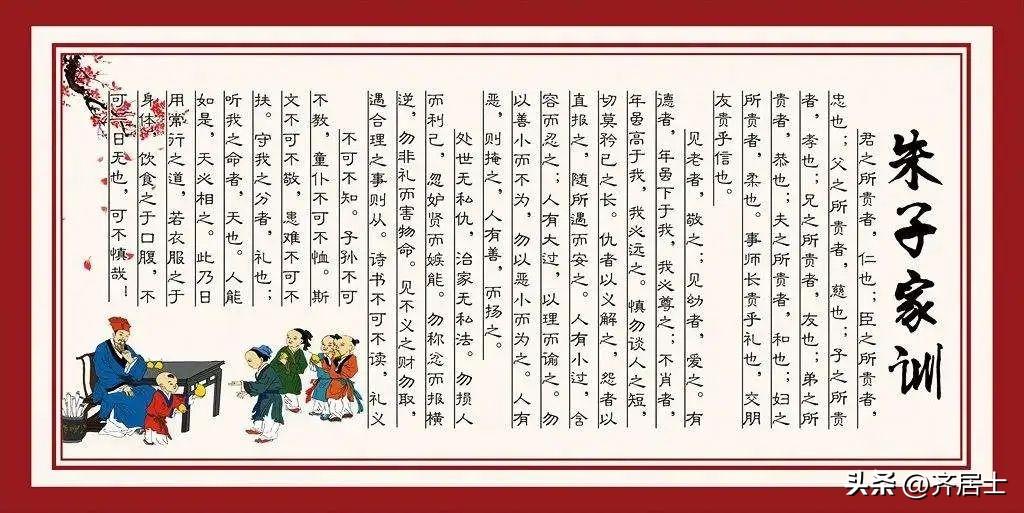 朱子家训
君之所贵者，仁也；臣之所贵者，
忠也；父之所贵者，慈也；子之所贵
者，孝也；兄之所贵者，友也；弟之所
贵者，恭也；夫之所贵者，和也；妇之
所贵者，柔也。事师长贵乎礼也，交朋
友贵乎信也。
见老者，敬之；见幼者，爱之。有
德者，年虽下于我，我必尊之；不肖者，
年虽高于我，我必远之。慎勿谈人之短，
切莫矜己之长。仇者以义解之，怨者以
直报之，随所遇而安之。人有小过，含
容而忍之；人有大过，以理而谕之。勿
以善小而不为，勿以恶小而为之。人有
恶，则掩之，人有善，而扬之。
处世无私仇，治家无私法。勿损人
而利己，忽妒贤而嫉能。勿称忿而报横
逆，勿非礼而害物命。见不义之财勿取，
遇合理之事则从。诗书不可不读，礼义
不可不知。子孙不可
不教，童仆不可不恤。斯
文不可不敬，患难不可不
扶。守我之分者，礼也；
听我之命者，天也。人能
如是，天必相之。此乃日
用常行之道，若衣服之于
身体，饮食之于口腹，不
可一日无也，可不慎哉！
头条 @齐居士